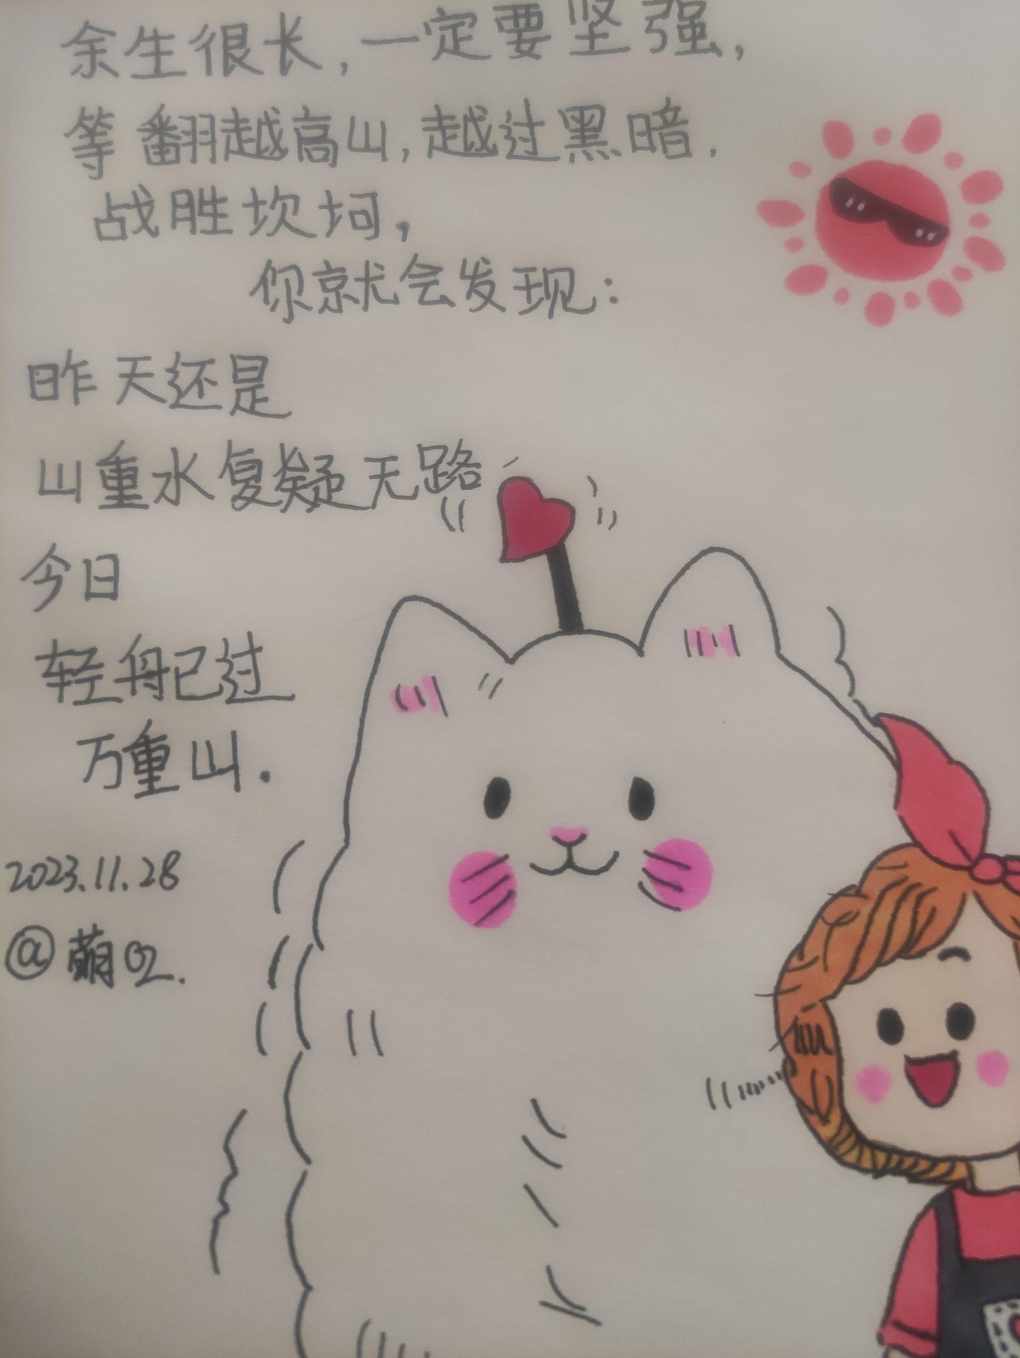 余生很长,一定要坚强,
等翻越高山,越过黑暗.
战胜坎坷,
你就会发现:
昨天还是
山重水复疑无路
今日
轻舟已过
万重山.
2023.11.28
@萌02.